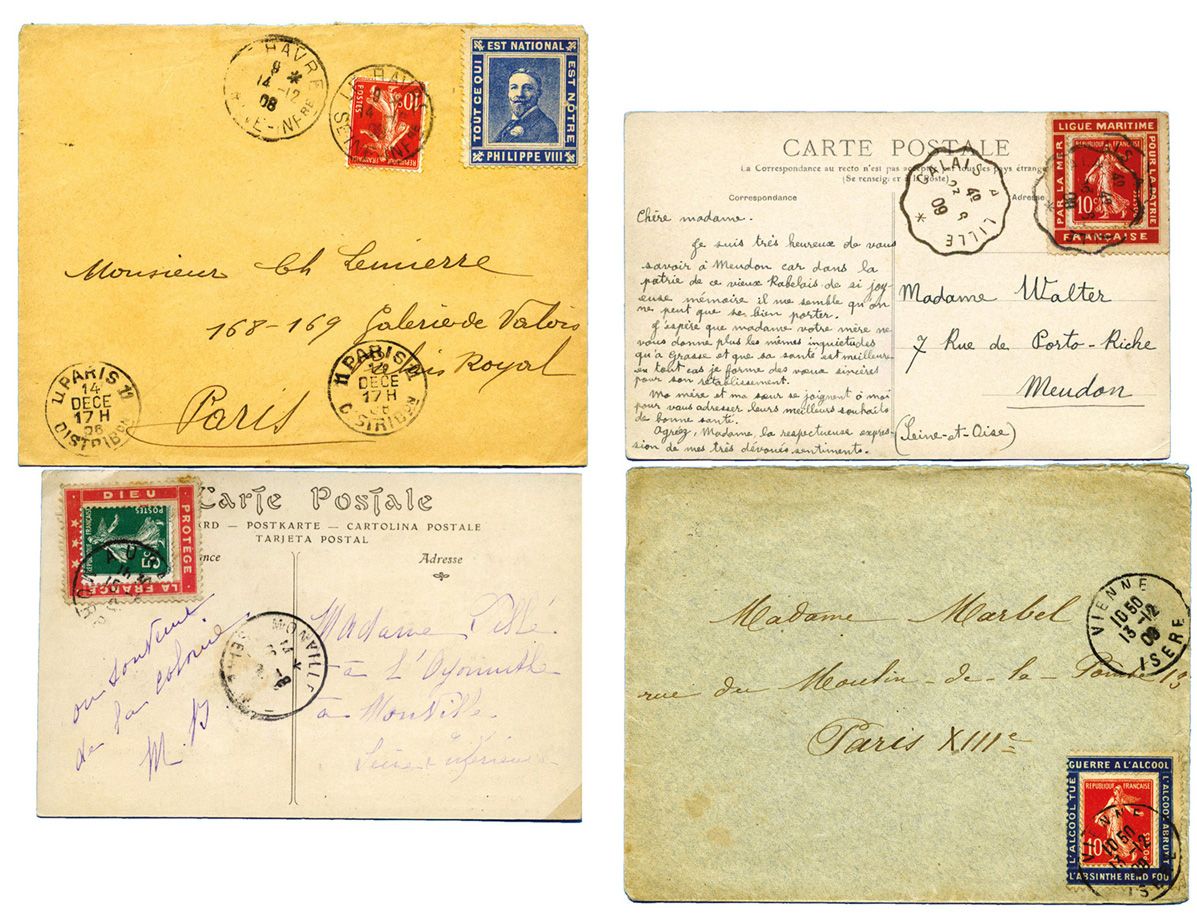 HAVRE
9 *
14 -12
08
LE HAVRE
9
14
SEINE-INFRE
10
POSTES
REPUBLIQUE FRANÇAISE
EST NATIONAL
TOUT CE QUI
EST NÔTRE
PHILIPPE VIII
Monsieur Ch Lemierre
168-169 Galerie de Valois
Palais Royal
Paris
11 PARIS 11
14
DECE
17 H
08
DISTRIBON
11 PARIS 11
14
DECE
17 H
08
DISTRIBON
CARTE POSTALE
La Correspondance au recto n'est pas acceptée par tous les pays étrangers
(Se renseigner à la Poste)
Correspondance
Adresse
CALAIS A LILLE
4°
22 9
09
*
LIGUE MARITIME
PAR LA MER
POUR LA PATRIE
10c
FRANÇAISE
Chère madame.
Je suis très heureux de vous
savoir à Meudon car dans la
patrie de ce vieux Rabelais de si joy-
euse mémoire il me semble qu'on
ne peut que se bien porter.
J'espère que madame votre mère ne
vous donne plus les mêmes inquiétudes
qu'à Grasse et que sa santé est meilleure
en tout cas je forme des vœux sincères
pour son rétablissement.
Ma mère et ma sœur se joignent à moi
pour vous adresser leurs meilleurs souhaits
de bonne santé.
Agréez, Madame, la respectueuse expres-
sion de mes très dévoués sentiments.
Madame Walter
7 Rue de Porto-Riche
Meudon
(Seine-et-Oise)
DIEU
PROTÈGE
LA FRANCE
POSTES
REPUBLIQUE FRANÇAISE
5c
Carte Postale
ARD — POSTKARTE — CARTOLINA POSTALE
TARJETA POSTAL
ance
Adresse
souvenir
de la colonie
M
MONVILLE
Madame
à
à Monville
Seine Inférieure
VIENNE
10 50
13 -12
09
ISERE
Madame Marbel
rue du Moulin-de-la-Pointe 13
Paris XIIIe
GUERRE A L'ALCOOL
L'ALCOOL TUE
L'ALCOOL ABRUTIT
L'ABSINTHE REND FOU
REPUBLIQUE FRANÇAISE
10c
VIENNE
10 50
13 -12
ISERE